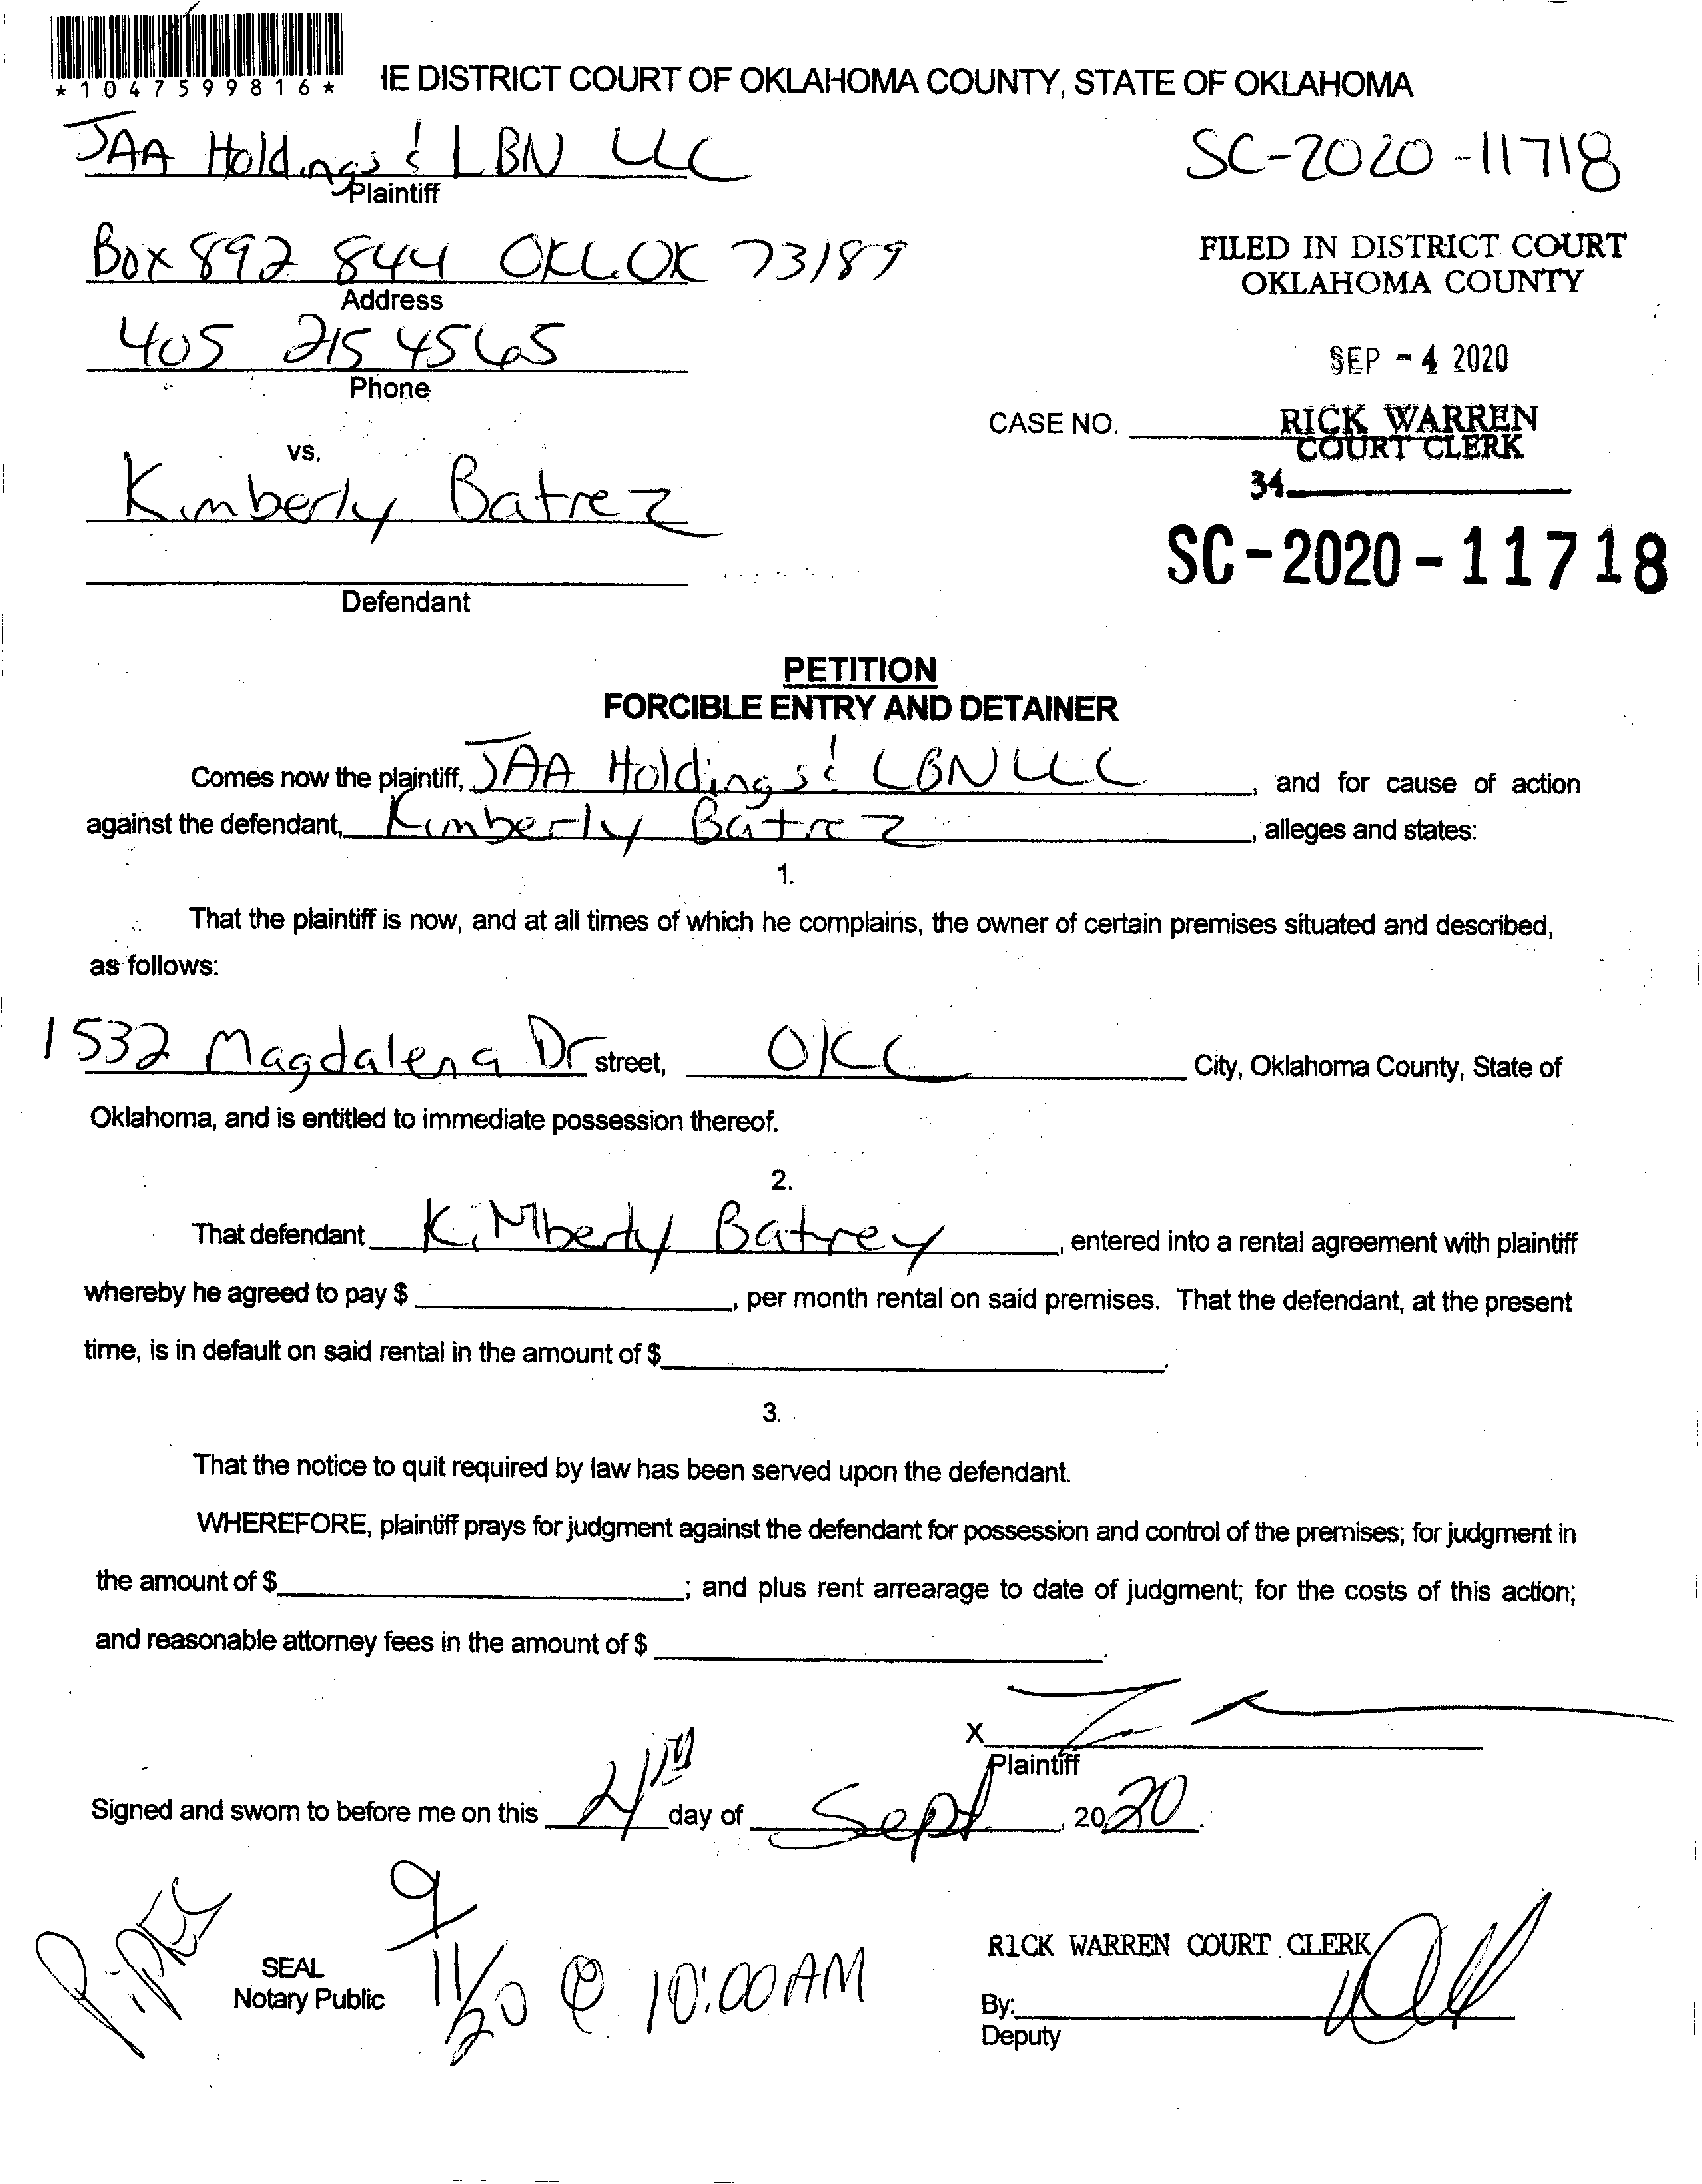 *1047599816*
IE DISTRICT COURT OF OKLAHOMA COUNTY, STATE OF OKLAHOMA
JAA Holdings & LBN LLC
SC-2020-11718
Plaintiff
Box 892 844 OKC OK 73189
FILED IN DISTRICT COURT
OKLAHOMA COUNTY
Address
405 215 4565
SEP - 4 2020
Phone
CASE NO. RICK WARREN
COURT CLERK
vs.
34
Kimberly Batrez
SC-2020-11718
Defendant
PETITION
FORCIBLE ENTRY AND DETAINER
Comes now the plaintiff, JAA Holdings & LBN LLC, and for cause of action
against the defendant, Kimberly Batrez, alleges and states:
1.
That the plaintiff is now, and at all times of which he complains, the owner of certain premises situated and described,
as follows:
1532 Magdalena Dr street, OKC City, Oklahoma County, State of
Oklahoma, and is entitled to immediate possession thereof.
2.
That defendant Kimberly Batrey, entered into a rental agreement with plaintiff
whereby he agreed to pay $, per month rental on said premises. That the defendant, at the present
time, is in default on said rental in the amount of $.
3.
That the notice to quit required by law has been served upon the defendant.
WHEREFORE, plaintiff prays for judgment against the defendant for possession and control of the premises; for judgment in
the amount of $; and plus rent arrearage to date of judgment; for the costs of this action;
and reasonable attorney fees in the amount of $.
X
Plaintiff
Signed and sworn to before me on this 4th day of Sept, 2020.
9/11/20 @ 10:00 AM
RICK WARREN COURT CLERK
SEAL
Notary Public
By:
Deputy